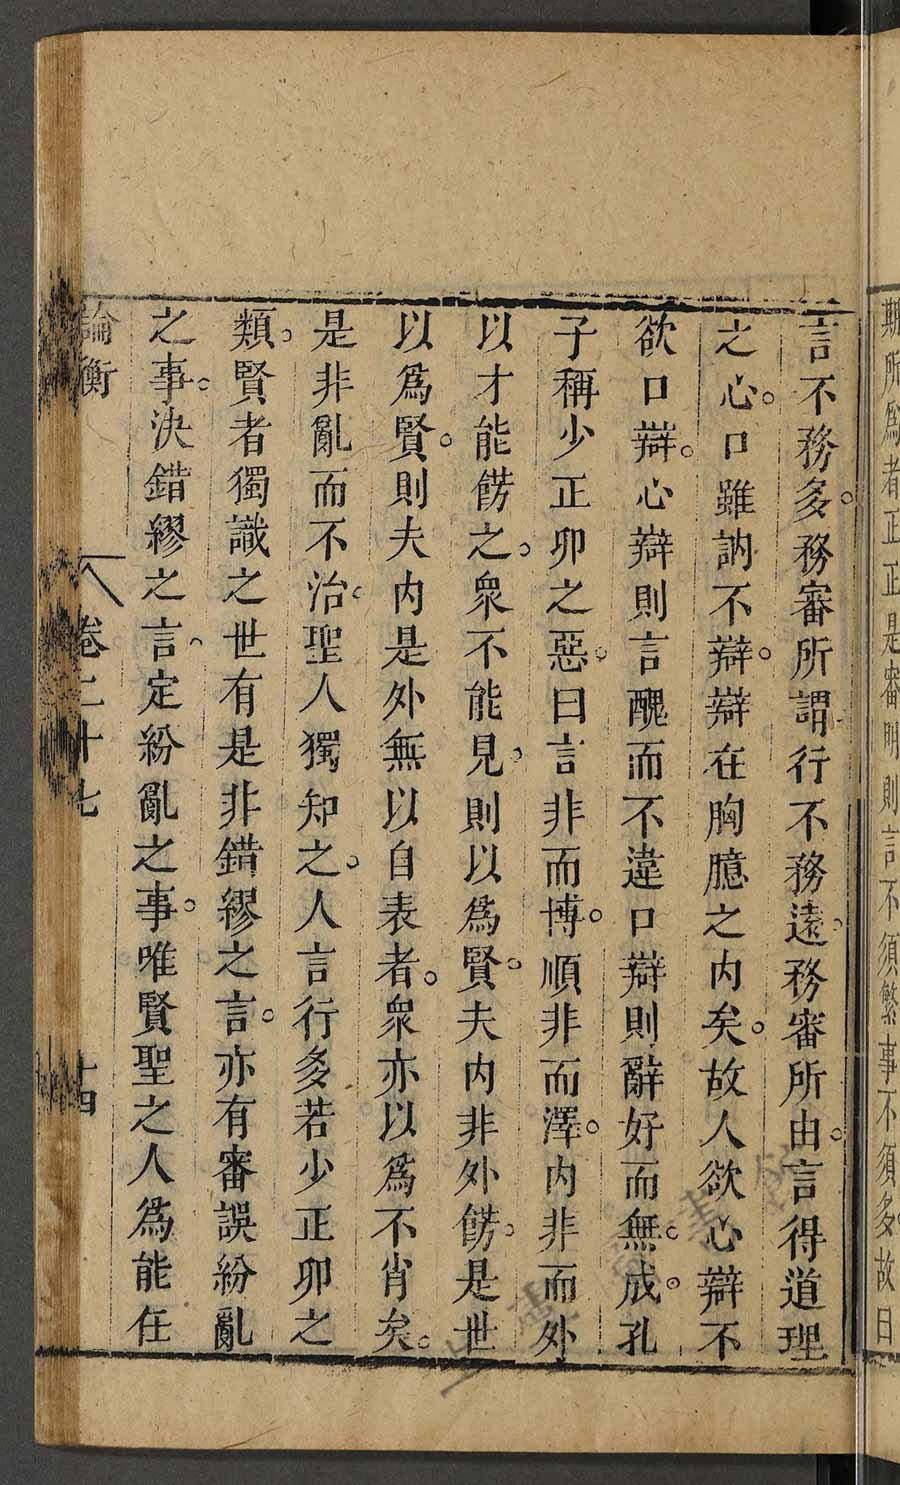 期所爲者正正是審明則言不須繁事不須多故曰
言不務多務審所謂行不務遠務審所由言得道理
之心口雖訥不辯辯在胸臆之内矣故人欲心辯不
欲口辯心辯則言醜而不違口辯則辭好而無成孔
子稱少正卯之惡曰言非而博順非而澤内非而外
以才能餝之衆不能見則以爲賢夫内非外餝是世
以爲賢則夫内是外無以自表者衆亦以爲不肖矣
是非亂而不治聖人獨知之人言行多若少正卯之
類賢者獨識之世有是非錯繆之言亦有審誤紛亂
之事決錯繆之言定紛亂之事唯賢聖之人爲能任
論衡 卷二十七 十四